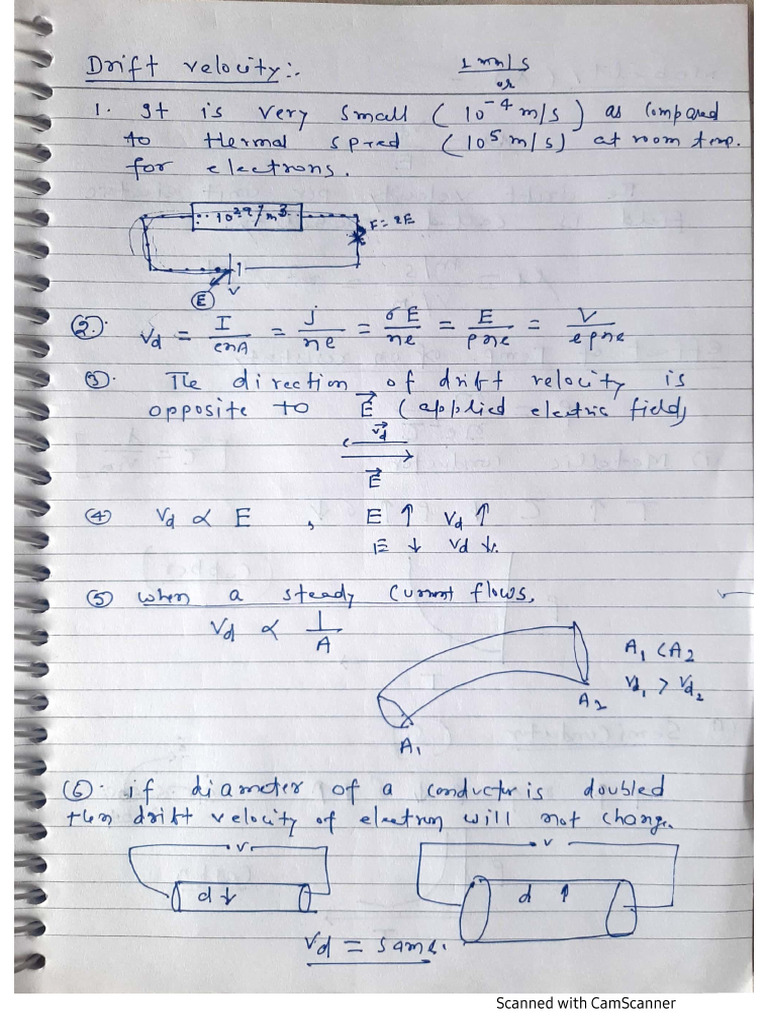 Drift velocity:.
1 mm/s
or
1. It is very small (10⁻⁴ m/s) as compared
to thermal speed (10⁵ m/s) at room temp.
for electrons.
10²⁹/m³
E
V
② V_d = I/enA = j/ne = σE/ne = E/ρne = V/eρne
③. The direction of drift velocity is
opposite to E⃗ (applied electric field)
v⃗_d
E⃗
④ V_d ∝ E , E ↑ V_d ↑
E ↓ V_d ↓.
⑤ when a steady current flows.
V_d ∝ 1/A
A₁ < A₂
V_d₁ > V_d₂
A₂
A₁
⑥. if diameter of a conductor is doubled
then drift velocity of electron will not change.
V
V
d ↓
d ↑
V_d = same.
Scanned with CamScanner